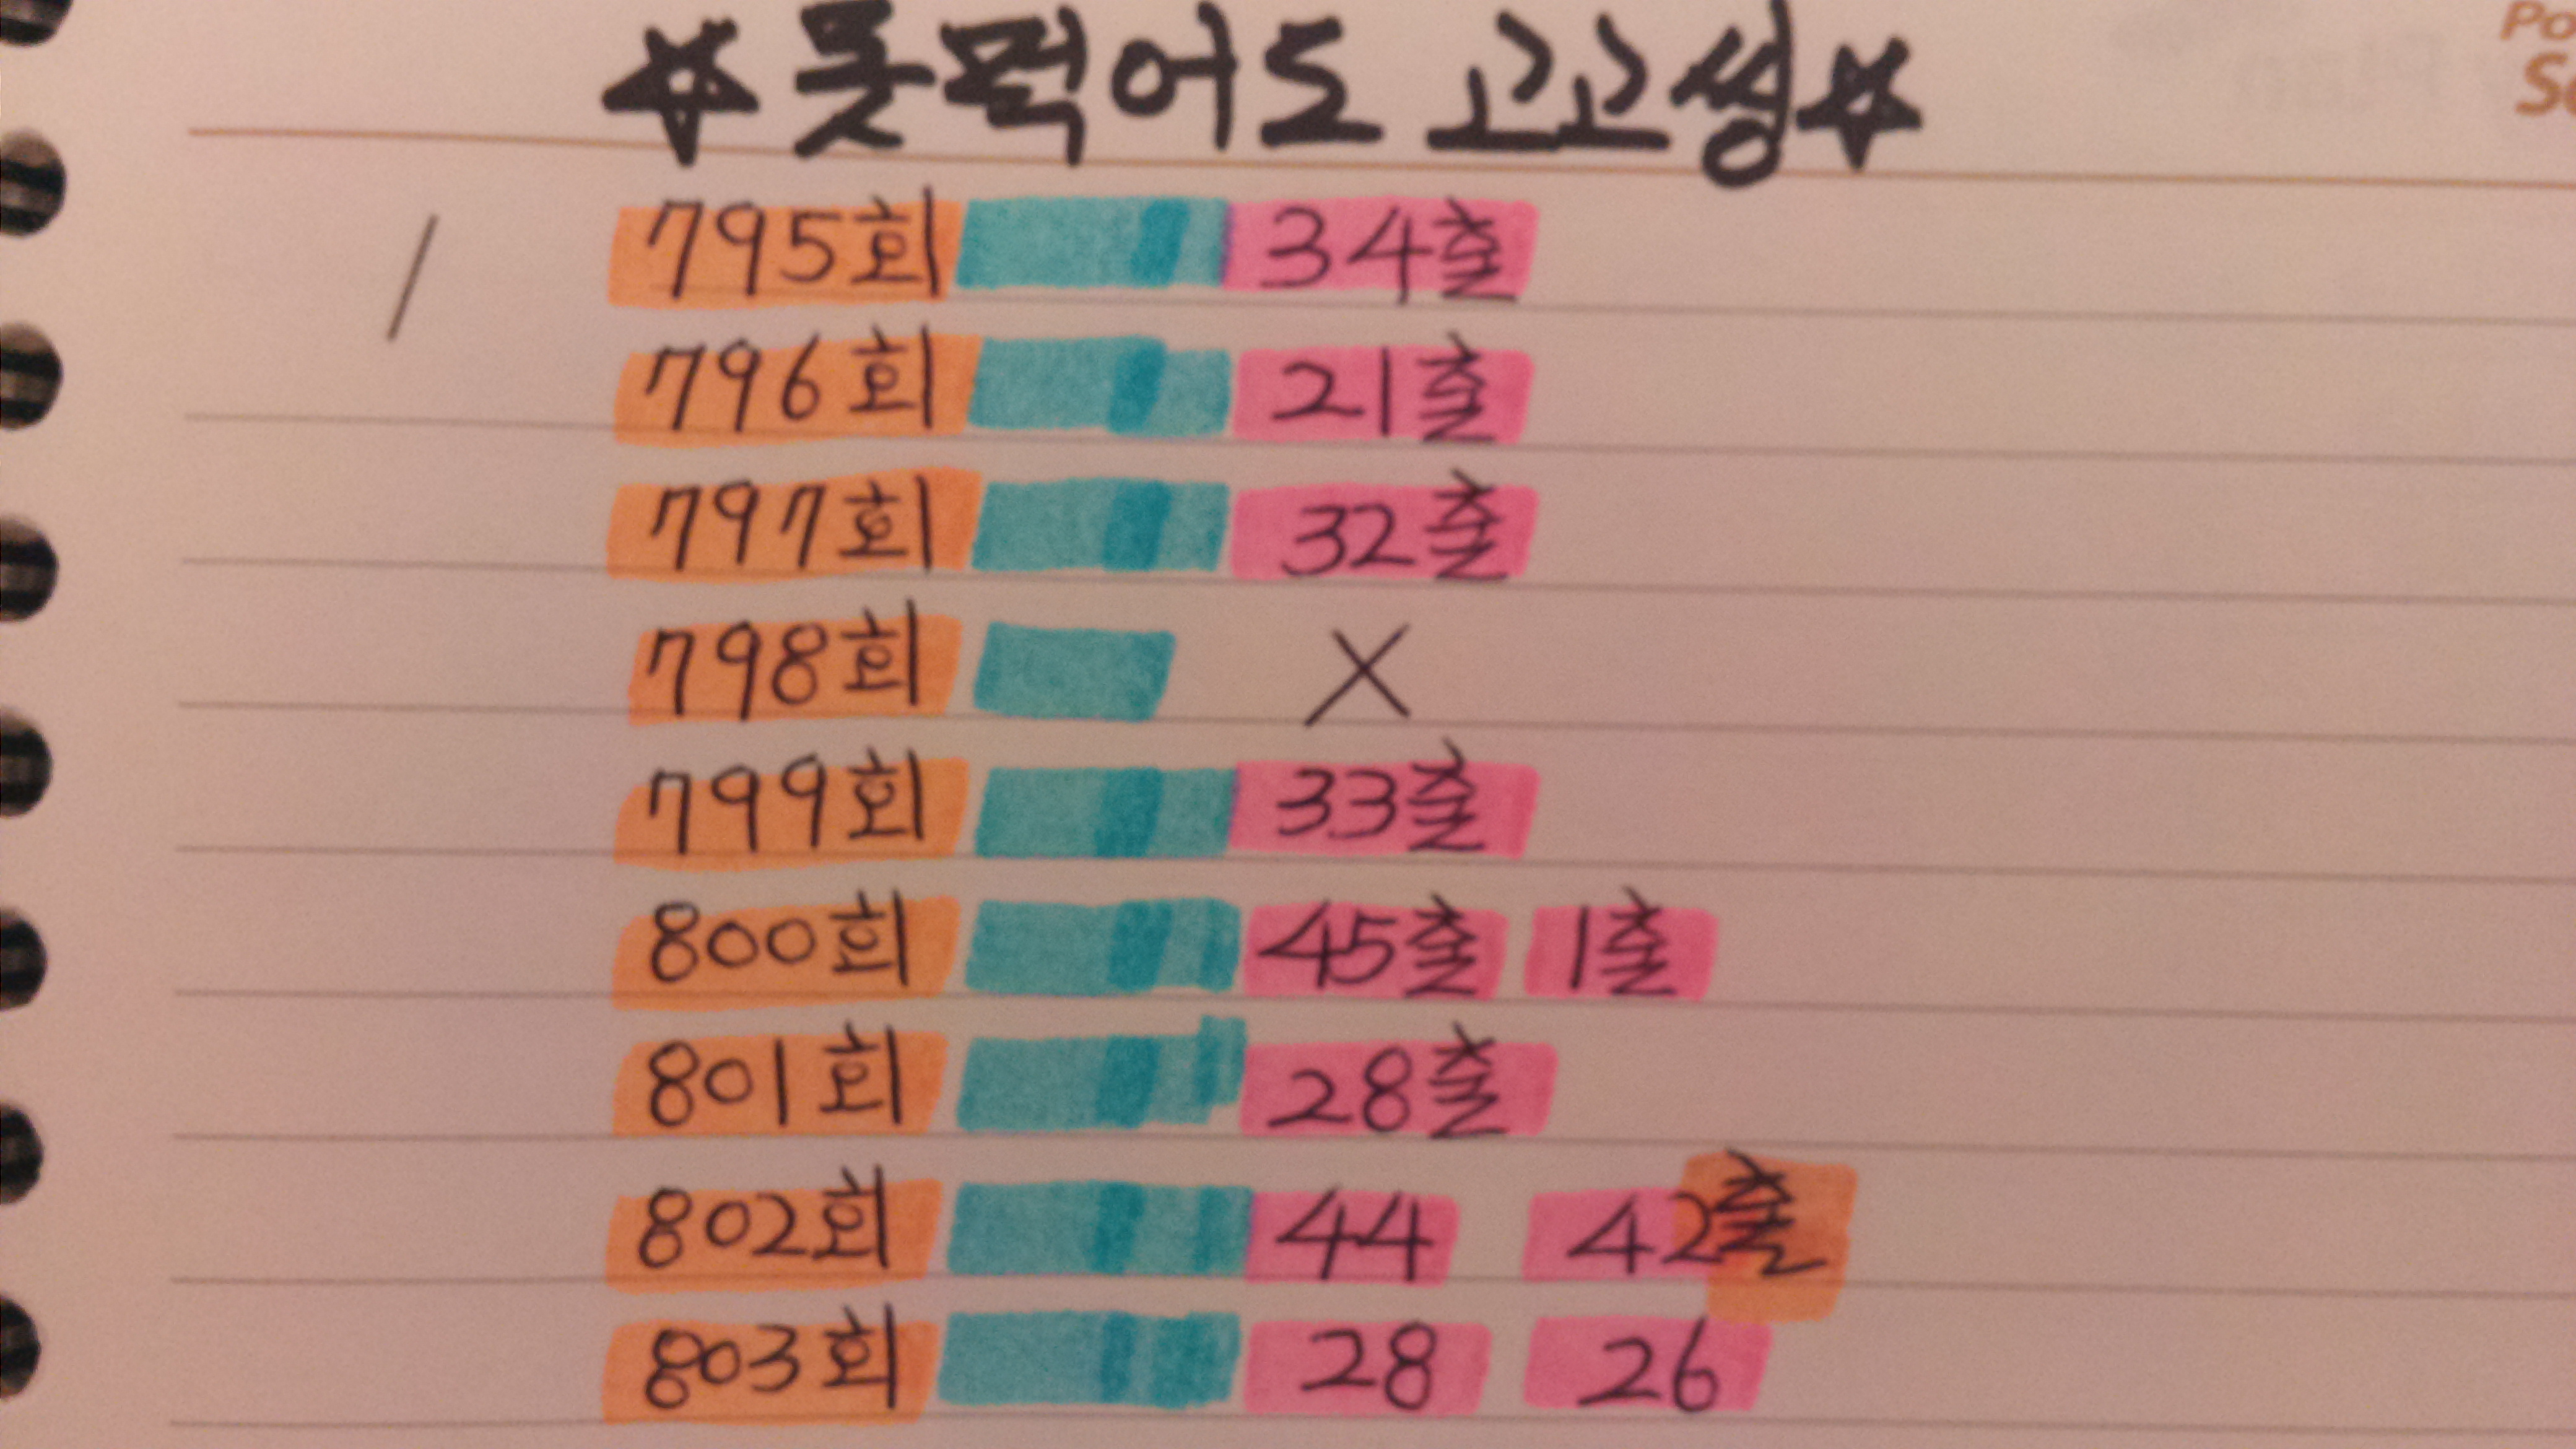 ☆못먹어도 고고씽☆
795회 34출
796회 21출
797회 32출
798회 X
799회 33출
800회 45출 1출
801회 28출
802회 44 42출
803회 28 26